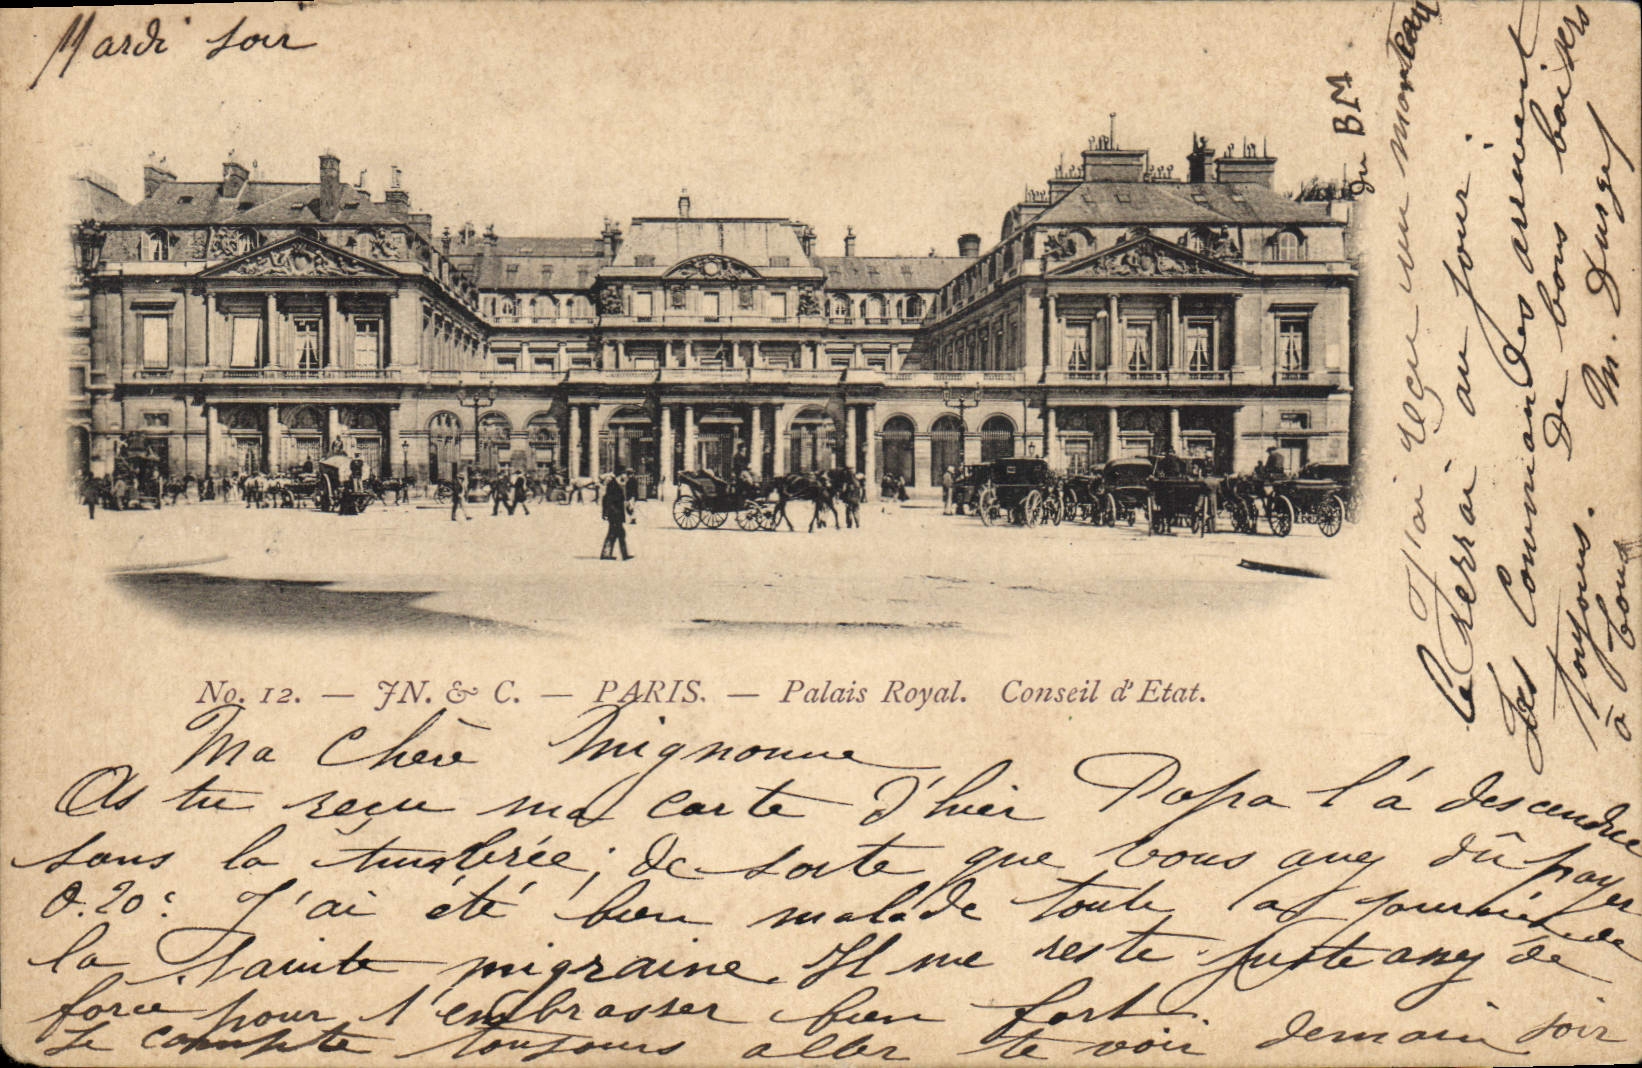 Mardi soir
No. 12. — JN. & C. — PARIS. — Palais Royal. Conseil d'Etat.
Ma Chère Mignonne
As tu reçu ma carte d'hier Papa l'a descendue
sans la timbrée; de sorte que vous avez dû payer
0.20c J'ai été bien malade toute la journée de
la Sainte migraine. Il me reste juste assez de
force pour t'embrasser bien fort.
Je compte toujours aller te voir demain soir
J'ai reçu un morceau
du BM
Ce verrai au jour.
Les Commandes arrivent
toujours. De bons baisers
à tous M.